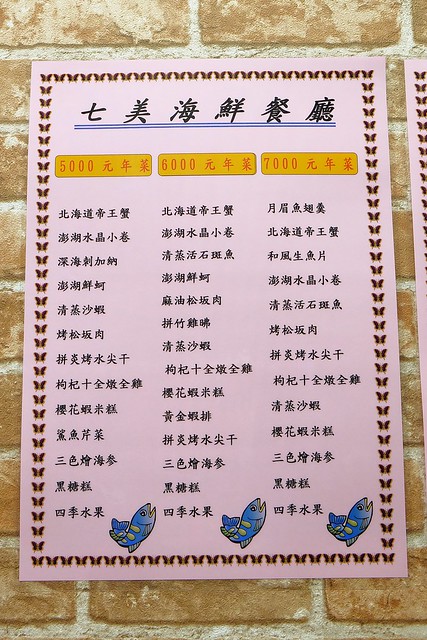 七美海鮮餐廳
5000 元 年 菜
北海道帝王蟹
澎湖水晶小卷
深海刺加納
澎湖鮮蚵
清蒸沙蝦
烤松坂肉
拼炎烤水尖干
枸杞十全燉全雞
櫻花蝦米糕
鯊魚芹菜
三色燴海参
黑糖糕
四季水果
6000 元 年 菜
北海道帝王蟹
澎湖水晶小卷
清蒸活石斑魚
澎湖鮮蚵
麻油松坂肉
拼竹雞昲
清蒸沙蝦
枸杞十全燉全雞
櫻花蝦米糕
黃金蝦排
拼炎烤水尖干
三色燴海参
黑糖糕
四季水果
7000 元 年 菜
月眉魚翅羹
北海道帝王蟹
和風生魚片
澎湖水晶小卷
清蒸活石斑魚
烤松坂肉
拼炎烤水尖干
枸杞十全燉全雞
清蒸沙蝦
櫻花蝦米糕
三色燴海参
黑糖糕
四季水果